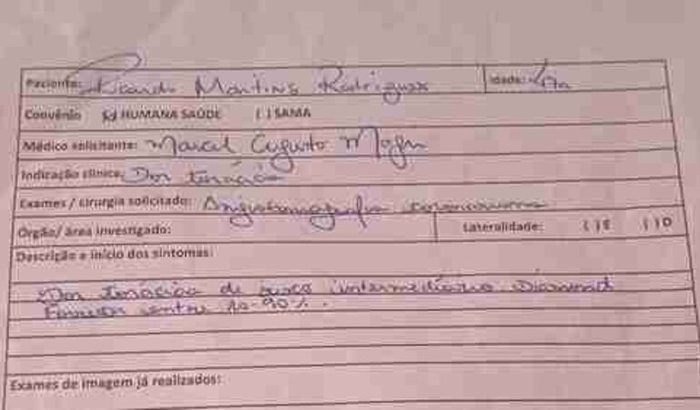 Paciente: Ricardo Martins Rodrigues Idade: 47a
Convênio (x) HUMANA SAÚDE ( ) SAMA
Médico solicitante: Marcel Augusto
Indicação clínica: Dor torácica
Exames / cirurgia solicitado: Angiotomografia coronariana
Órgão/ área investigado: Lateralidade: ( ) E ( ) D
Descrição e início dos sintomas:
Dor torácica de risco intermediário Diamond
Forrester entre 10-90%.
Exames de imagem já realizados: